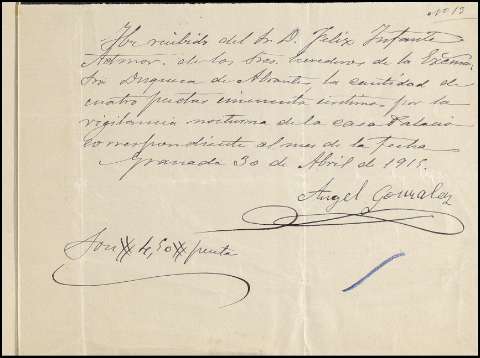 Nº 13
He recibido del Sr. D. Felix Infante
Admor. de los Sres. herederos de la Excma.
Sra Duquesa de Abrantes, la cantidad de
cuatro pesetas cincuenta centimos por la
vigilancia nocturna de la casa Palacio
correspondiente al mes de la fecha
Granada 30 de Abril de 1915.
Angel Gonzalez
Son # 4,50 # pesetas